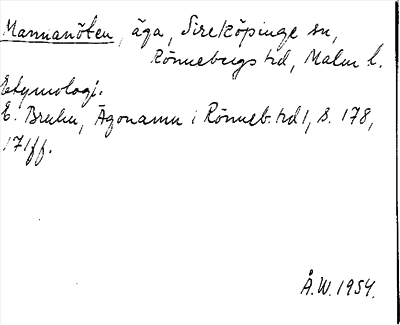 Mannanöten, äga, Sireköpinge sn,
Rönnebergs hd, Malm l.
Etymologi.
E. Bruhn, Ägonamn i Rönneb. hd 1, s. 178,
171ff.
Å.W. 1954.